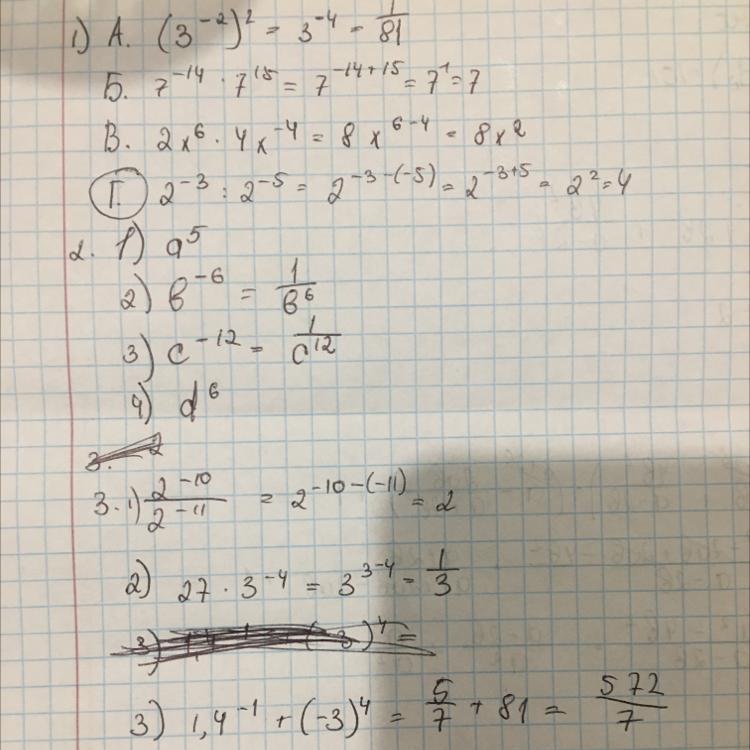 1) А. (3⁻²)² = 3⁻⁴ = 1/81
Б. 7⁻¹⁴ · 7¹⁵ = 7⁻¹⁴⁺¹⁵ = 7¹ = 7
В. 2x⁶ · 4x⁻⁴ = 8x⁶⁻⁴ = 8x²
Г. 2⁻³ : 2⁻⁵ = 2⁻³⁻⁽⁻⁵⁾ = 2⁻³⁺⁵ = 2² = 4
2. 1) a⁵
2) в⁻⁶ = 1/в⁶
3) c⁻¹² = 1/c¹²
4) d⁶
3. 1) 2⁻¹⁰/2⁻¹¹ = 2⁻¹⁰⁻⁽⁻¹¹⁾ = 2
2) 27 · 3⁻⁴ = 3³⁻⁴ = 1/3
3) 1,4⁻¹ + (-3)⁴ = 5/7 + 81 = 572/7